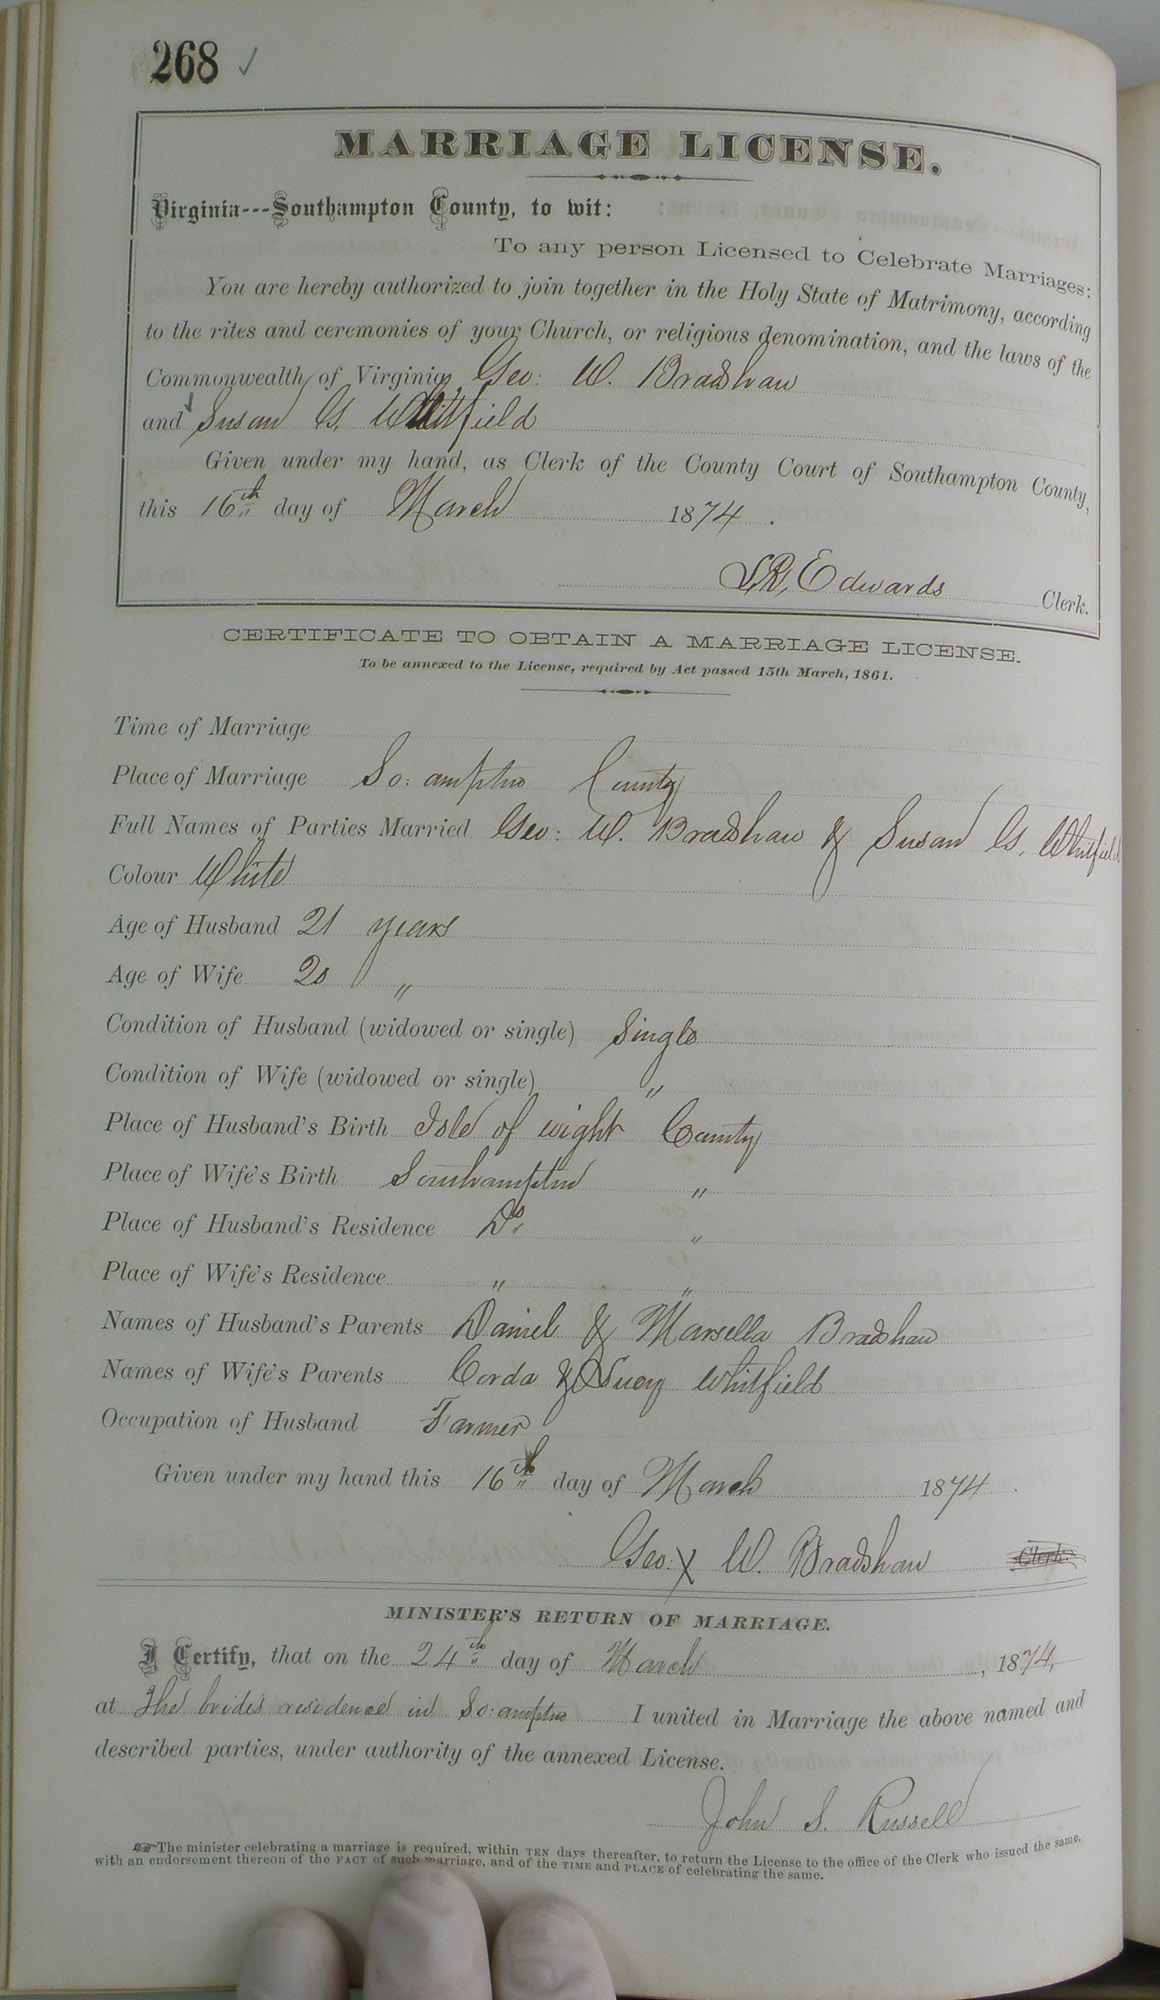 268 ✓
MARRIAGE LICENSE.
Virginia---Southampton County, to wit:
To any person Licensed to Celebrate Marriages:
You are hereby authorized to join together in the Holy State of Matrimony, according
to the rites and ceremonies of your Church, or religious denomination, and the laws of the
Commonwealth of Virginia, Geo: W. Bradshaw
and Susan G. Whitfield
Given under my hand, as Clerk of the County Court of Southampton County,
this 16th day of March 1874.
L.R. Edwards Clerk.
CERTIFICATE TO OBTAIN A MARRIAGE LICENSE.
To be annexed to the License, required by Act passed 15th March, 1861.
Time of Marriage
Place of Marriage So: ampton County
Full Names of Parties Married Geo: W. Bradshaw & Susan G. Whitfield
Colour White
Age of Husband 21 years
Age of Wife 20 "
Condition of Husband (widowed or single) Single
Condition of Wife (widowed or single) "
Place of Husband's Birth Isle of wight County
Place of Wife's Birth Southampton "
Place of Husband's Residence Do. "
Place of Wife's Residence " "
Names of Husband's Parents Daniel & Marsella Bradshaw
Names of Wife's Parents Corda & Lucy Whitfield
Occupation of Husband Farmer
Given under my hand this 16th day of March 1874.
Geo: X W. Bradshaw Clerk.
MINISTER'S RETURN OF MARRIAGE.
I Certify, that on the 24th day of March, 1874,
at The brides residence in So: ampton I united in Marriage the above named and
described parties, under authority of the annexed License.
John S. Russell
☞The minister celebrating a marriage is required, within TEN days thereafter, to return the License to the office of the Clerk who issued the same,
with an endorsement thereon of the FACT of such marriage, and of the TIME and PLACE of celebrating the same.